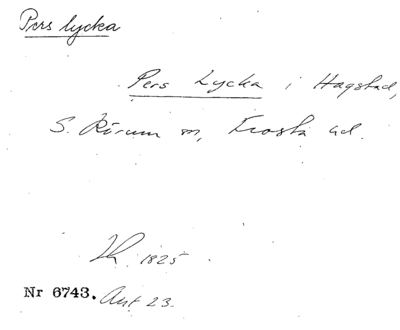 Pers lycka
Pers Lycka i Hagstad,
S. Rörum sn, Frosta hd.
Lh. 1825
Nr 6743. Akt 23.